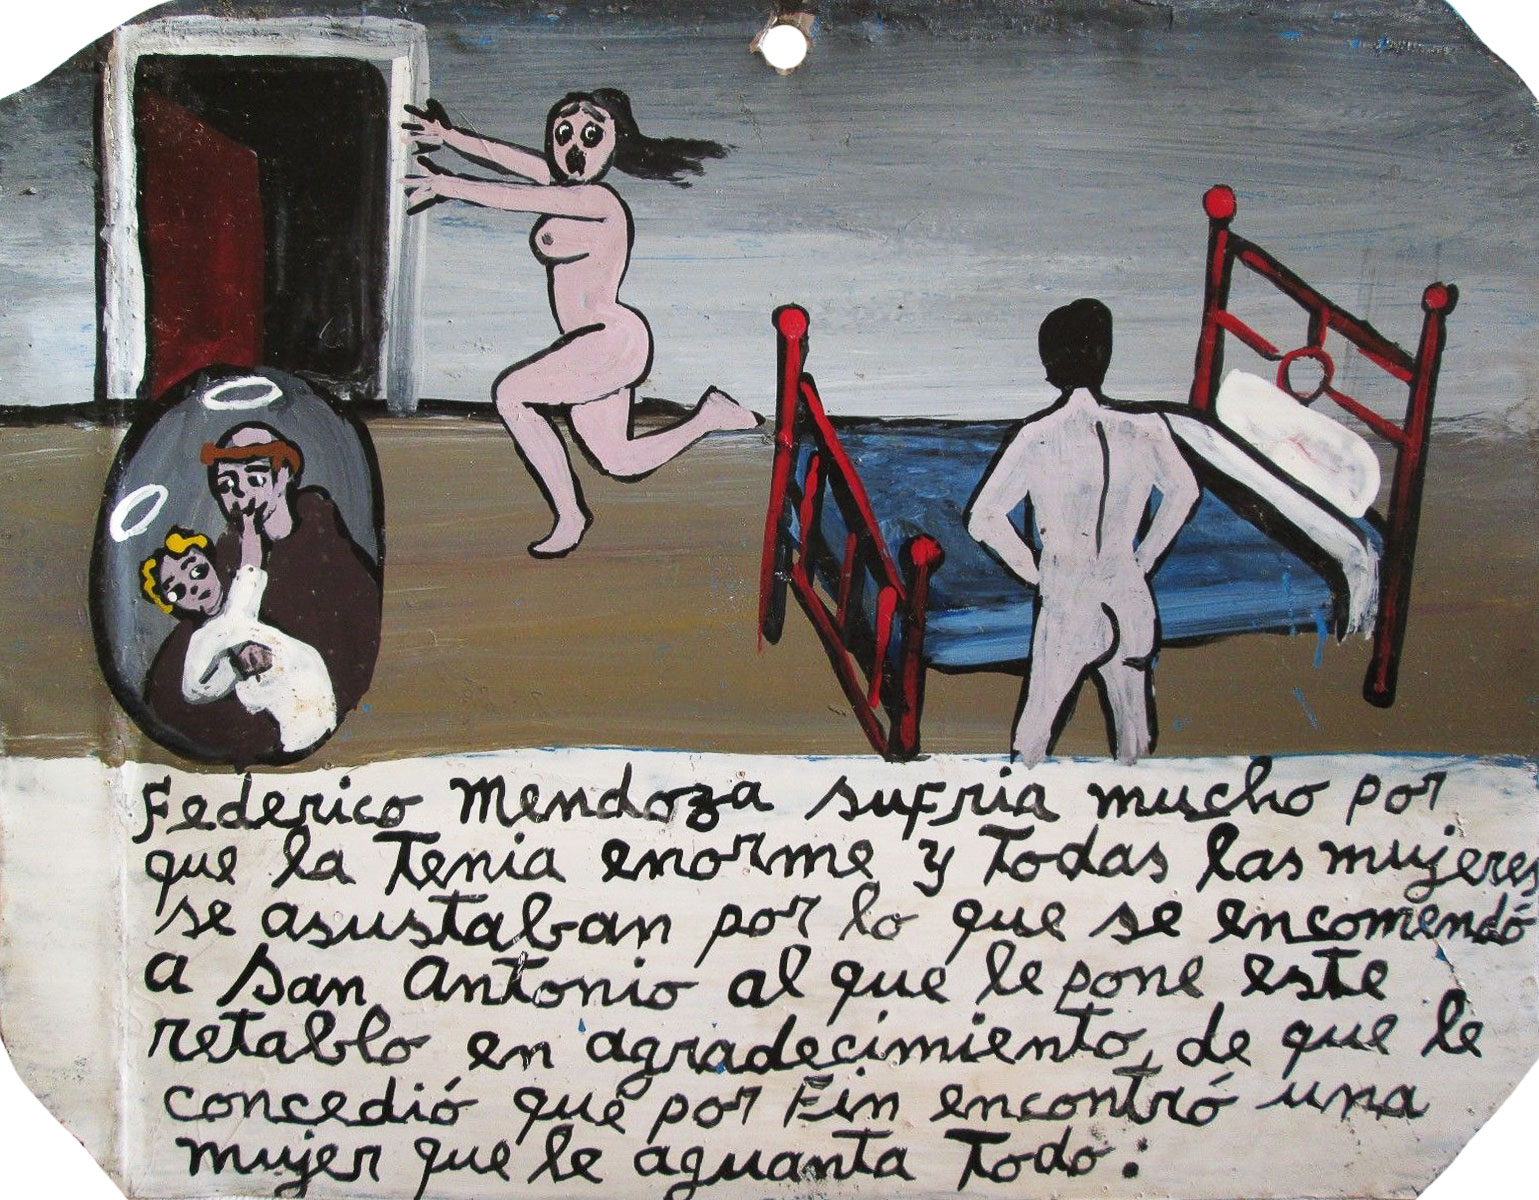 Federico Mendoza sufria mucho por
que la Tenia enorme y Todas las mujeres
se asustaban por lo que se encomendó
a San Antonio al que le pone este
retablo en agradecimiento, de que le
concedió que por Fin encontró una
mujer que le aguanta Todo: